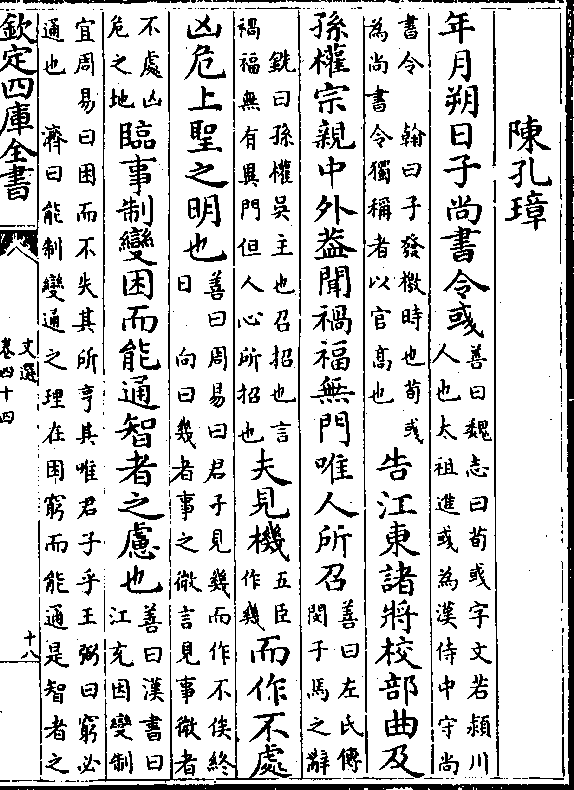 陳孔璋
年月朔日子尚書令彧善曰魏志曰荀彧字文若潁川人也太祖進彧為漢侍中守尚
書令　翰曰子發檄時也荀彧為尚書令獨稱者以官髙也告江東諸將校部曲及
孫權宗親中外葢聞禍福無門唯人所召善曰左氏傳閔子馬之辭
銑曰孫權吳主也召招也言禍福無有異門但人心所招也夫見機五臣作幾而作不處
凶危上聖之明也善曰周易曰君子見幾而作不俟終日　向曰幾者事之微言見事微者
不處凶危之地臨事制變困而能通智者之慮也善曰漢書曰江充因變制
宜周易曰困而不失其所亨其唯君子乎王弼曰窮必
通也　濟曰能制變通之理在困窮而能通是智者之
欽定四庫全書
文選
卷四十四
十八